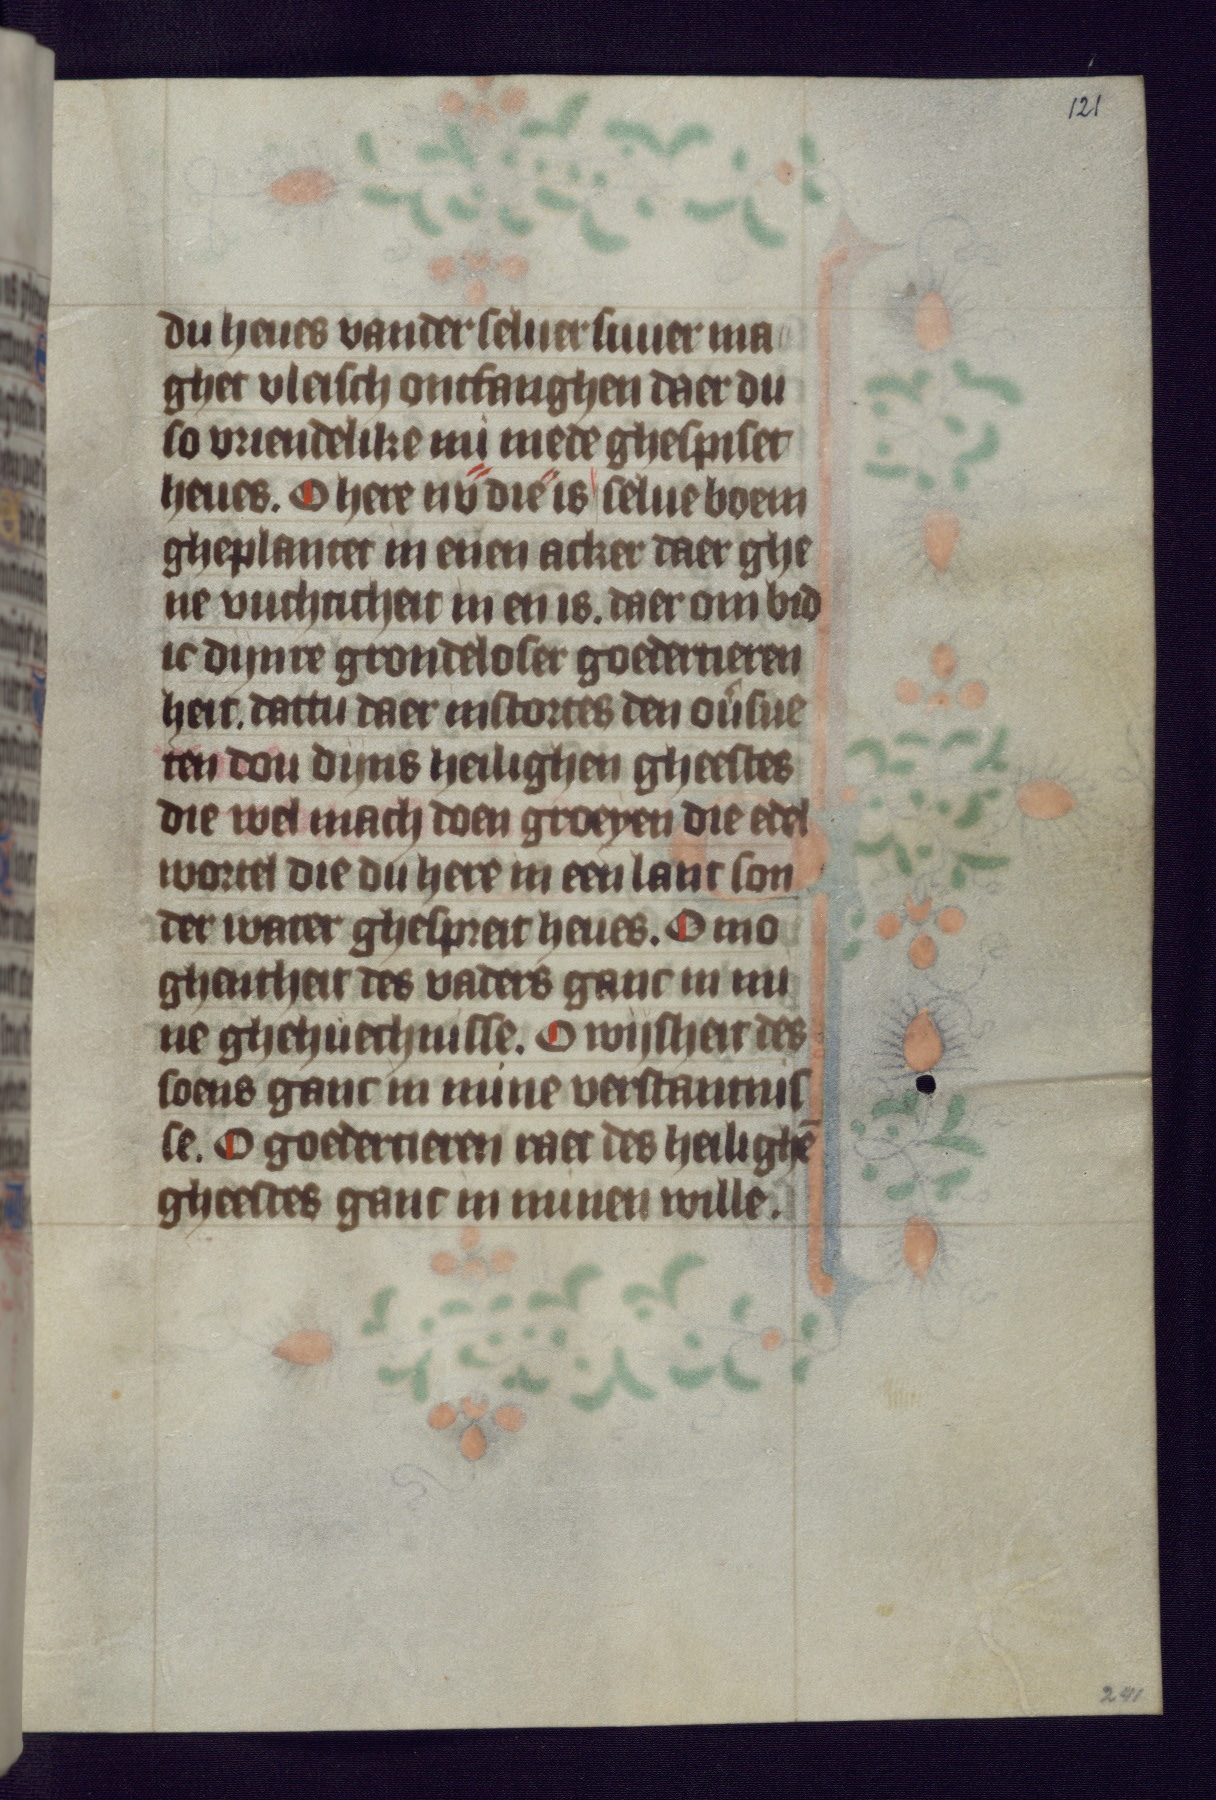 121
du heues vander seluer suuer ma
ghet vleisch ontfanghen daer du
so vriendelike mi mede ghespiset
heues. O here nv die is selue boem
gheplantet in enen acker daer ghe
ne vuchticheit in en is. daer om bid
ic dijnre grondeloser goedertieren
heit. dattu daer instortes den ouſue
ten dou dijns heilighen gheestes
die wel mach doen groeyen die edel
wortel die du here in een lant son
der water ghespreit heues. O mo
ghentheit des vaders ganc in mi
ne ghehuechnisse. O wijsheit des
soens ganc in mine verstantnis
se. O goedertieren raet des heilighē
gheestes ganc in minen wille.
241